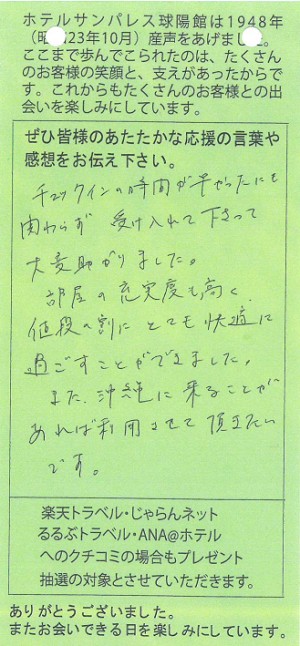 ホテルサンパレス球陽館は1948年
（昭23年10月）産声をあげました。
ここまで歩んでこられたのは、たくさん
のお客様の笑顔と、支えがあったからで
す。これからもたくさんのお客様との出
会いを楽しみにしています。
ぜひ皆様のあたたかな応援の言葉や
感想をお伝え下さい。
チェックインの時間が早かったにも
関わらず 受け入れて下さって
大変助かりました。
部屋の充実度も高く
値段の割に とても快適に
過ごすことができました。
また、沖縄に来ることが
あれば利用させて頂きたい
です。
楽天トラベル・じゃらんネット
るるぶトラベル・ANA@ホテル
へのクチコミの場合もプレゼント
抽選の対象とさせていただきます。
ありがとうございました。
またお会いできる日を楽しみにしています。